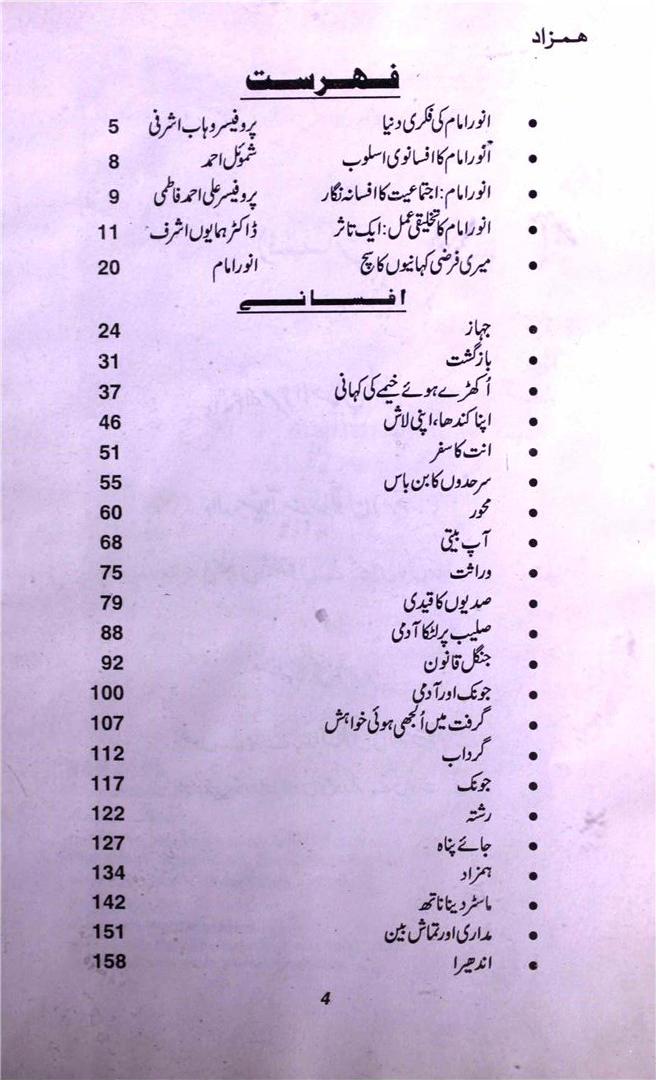 ھمزاد
فہرست
انور امام کی فکری دنیا پروفیسر وہاب اشرفی 5
انور امام کا افسانوی اسلوب شموئل احمد 8
انور امام: اجتماعیت کا افسانہ نگار پروفیسر علی احمد فاطمی 9
انور امام کا تخلیقی عمل: ایک تاثر ڈاکٹر ہمایوں اشرف 11
میری فرضی کہانیوں کا سچ انور امام 20
افسانے
جہاز 24
بازگشت 31
اُکھڑے ہوئے خیمے کی کہانی 37
اپنا کندھا، اپنی لاش 46
انت کا سفر 51
سرحدوں کا بن باس 55
محور 60
آپ بیتی 68
وراثت 75
صدیوں کا قیدی 79
صلیب پر لٹکا آدمی 88
جنگل قانون 92
جونک اور آدمی 100
گرفت میں اُلجھی ہوئی خواہش 107
گرداب 112
جونک 117
رشتہ 122
جائے پناہ 127
ہمزاد 134
ماسٹر دینا ناتھ 142
مداری اور تماش بین 151
اندھیرا 158
4